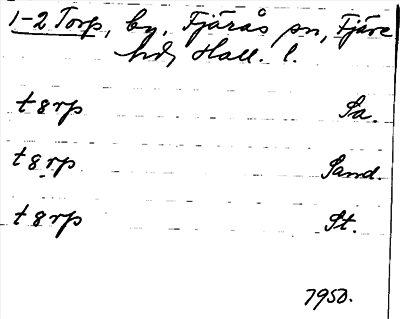 1-2 Torp, by, Fjärås sn, Fjäre
hd, Hall. l.
t8rp Sa.
t8rp Sand.
t8rp St.
1950.